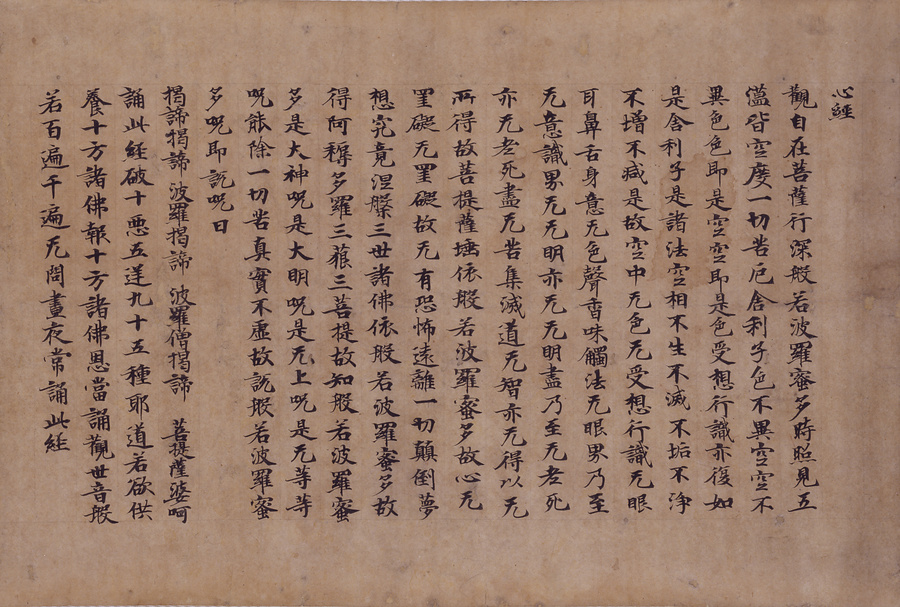 心經
觀自在菩薩行深般若波羅蜜多時照見五
蘊皆空度一切苦厄舍利子色不異空空不
異色色即是空空即是色受想行識亦復如
是舍利子是諸法空相不生不滅不垢不淨
不增不減是故空中无色无受想行識无眼
耳鼻舌身意无色聲香味觸法无眼界乃至
无意識界无无明亦无无明盡乃至无老死
亦无老死盡无苦集滅道无智亦无得以无
所得故菩提薩埵依般若波羅蜜多故心无
罣礙无罣礙故无有恐怖遠離一切顛倒夢
想究竟涅槃三世諸佛依般若波羅蜜多故
得阿耨多羅三藐三菩提故知般若波羅蜜
多是大神呪是大明呪是无上呪是无等等
呪能除一切苦真實不虛故說般若波羅蜜
多呪即說呪曰
揭諦揭諦波羅揭諦 波羅僧揭諦 菩提薩婆呵
誦此經破十惡五逆九十五種耶道若欲供
養十方諸佛報十方諸佛恩當誦觀世音般
若百遍千遍无問晝夜常誦此經